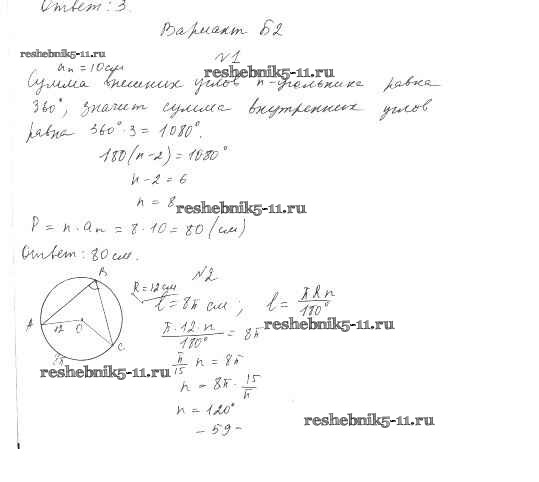 Ответ: 3.
Вариант Б2
reshebnik5-11.ru
№1
aₙ = 10см
reshebnik5-11.ru
Сумма внешних углов n-угольника равна
360°, значит сумма внутренних углов
равна 360°·3 = 1080°.
180(n-2) = 1080°
n-2 = 6
n = 8
reshebnik5-11.ru
P = n·aₙ = 8·10 = 80 (см)
Ответ: 80 см.
№2
B
R = 12 см
l = 8π см; l = πRn/180°
A 12 O
π·12·n/180° = 8π
reshebnik5-11.ru
C
8π
π/15 n = 8π
reshebnik5-11.ru
n = 8π · 15/π
n = 120°
reshebnik5-11.ru
- 59 -